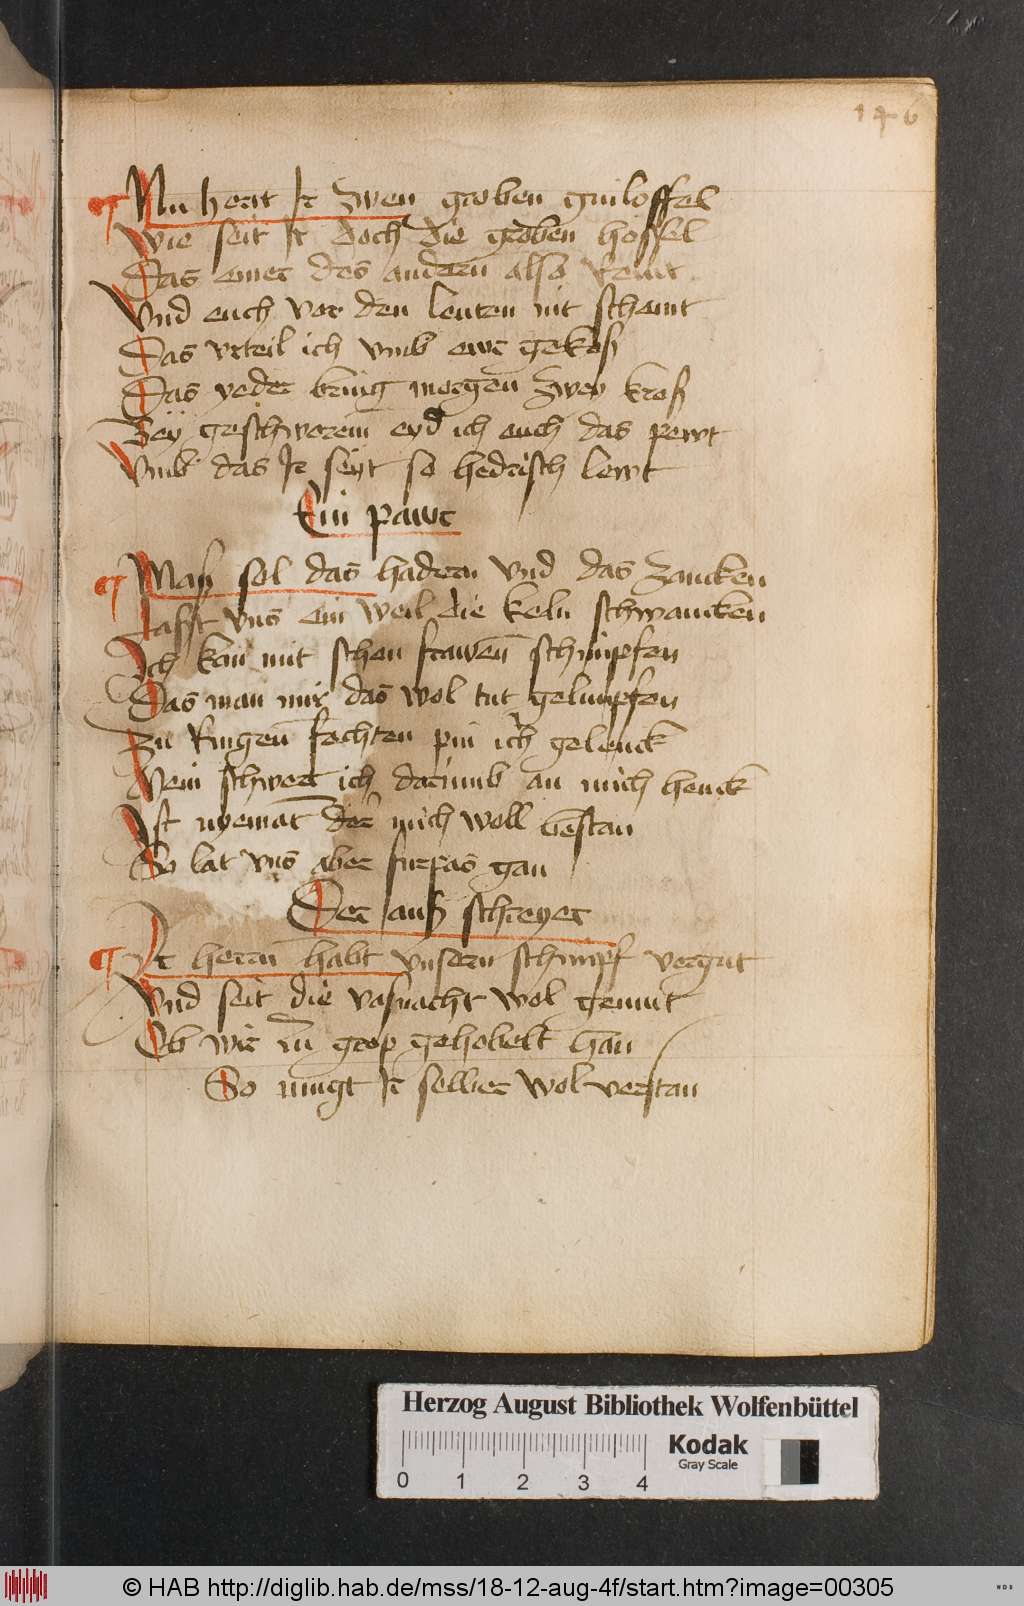 146
Nu hort Ir zwen groben guiloffel
Wie seit Ir doch die groben hoffel
Das einer des andern also remt
Vnd euch vor den leuten nit schemt
Das vrteil ich vmb ewr gekoß
Das yeder bring morgen zwey kroß
Bey geschworem eyd ich euch das pewt
Vmb das Ir seyt so hedrisch lewt
Ein pawr
Man sol das hadern vnd das zancken
Lasst vns ein weil die keln schwancken
Ich kan mit schon frawen schimpfen
Das man mir das wol tut gelimpfen
Zu Ringen fechten pin ich gelenck
Mein schwert ich darumb an mich henck
Ist nyemat der mich woll bestan
So lat vns aber furpas gan
Der auß schreyer
Ir herrn habt vnsern schimpf vergut
Vnd seit die vasnacht wol gemut
Ob wir zu grop gehobelt han
So mugt Ir selber wol verstan
Herzog August Bibliothek Wolfenbüttel
Kodak
Gray Scale
0 1 2 3 4
© HAB http://diglib.hab.de/mss/18-12-aug-4f/start.htm?image=00305